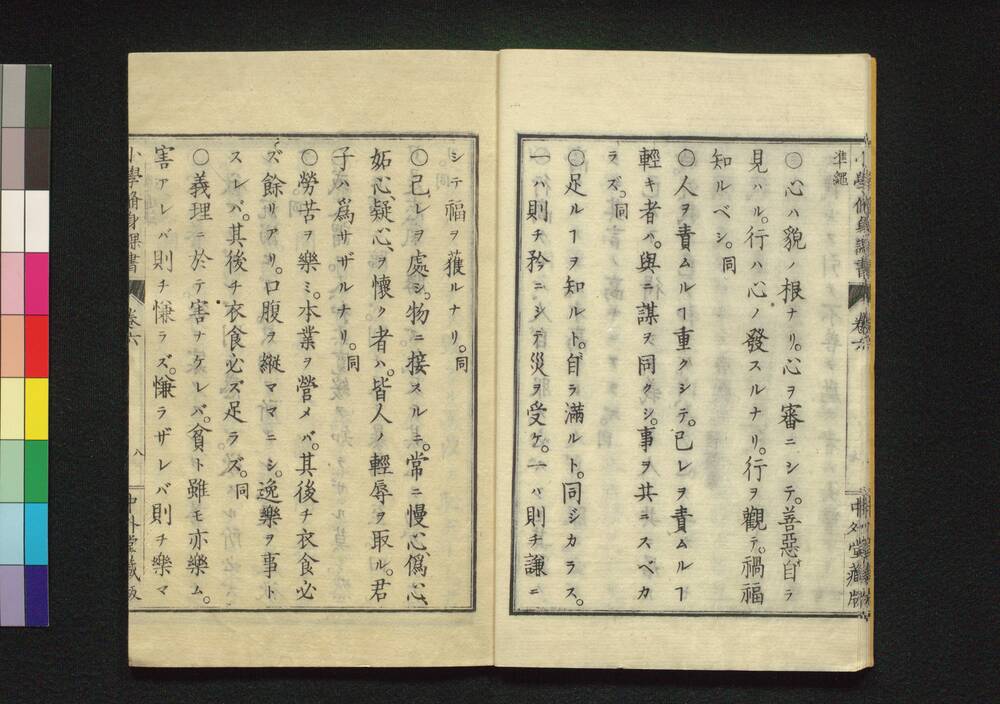 準繩
〇心ハ貌ノ根ナリ。心ヲ審ニシテ。善惡自ラ
見ハル。行ハ心ノ發スルナリ。行ヲ觀テ。禍福
知ルベシ。同
〇人ヲ責ムルヿ重クシテ。己レヲ責ムルヿ
輕キ者ハ。與ニ謀ヲ同クシ。事ヲ共ニスベカ
ラズ。同
〇足ルヿヲ知ルト。自ラ滿ルト。同ジカラス。
一ハ則チ矜ニシテ災ヲ受ケ。一ハ則チ謙ニ
中外堂藏版
シテ福ヲ獲ルナリ。同
〇己レヲ處シ。物ニ接スルニ。常ニ慢心僞心
妬心疑心ヲ懷ク者ハ。皆人ノ輕辱ヲ取ル。君
子ハ爲サザルナリ。同
〇勞苦ヲ樂ミ。本業ヲ營メバ。其後チ衣食必
ズ餘リアリ。口腹ヲ縱マママニシ。逸樂ヲ事ト
スレバ。其後チ衣食必ズ足ラズ。同
〇義理ニ於テ害ナケレバ。貧ト雖モ亦樂ム。
害アレバ則チ慊ラズ。慊ラザレバ則チ樂マ
小學脩身課書 卷六 八 中外堂藏版